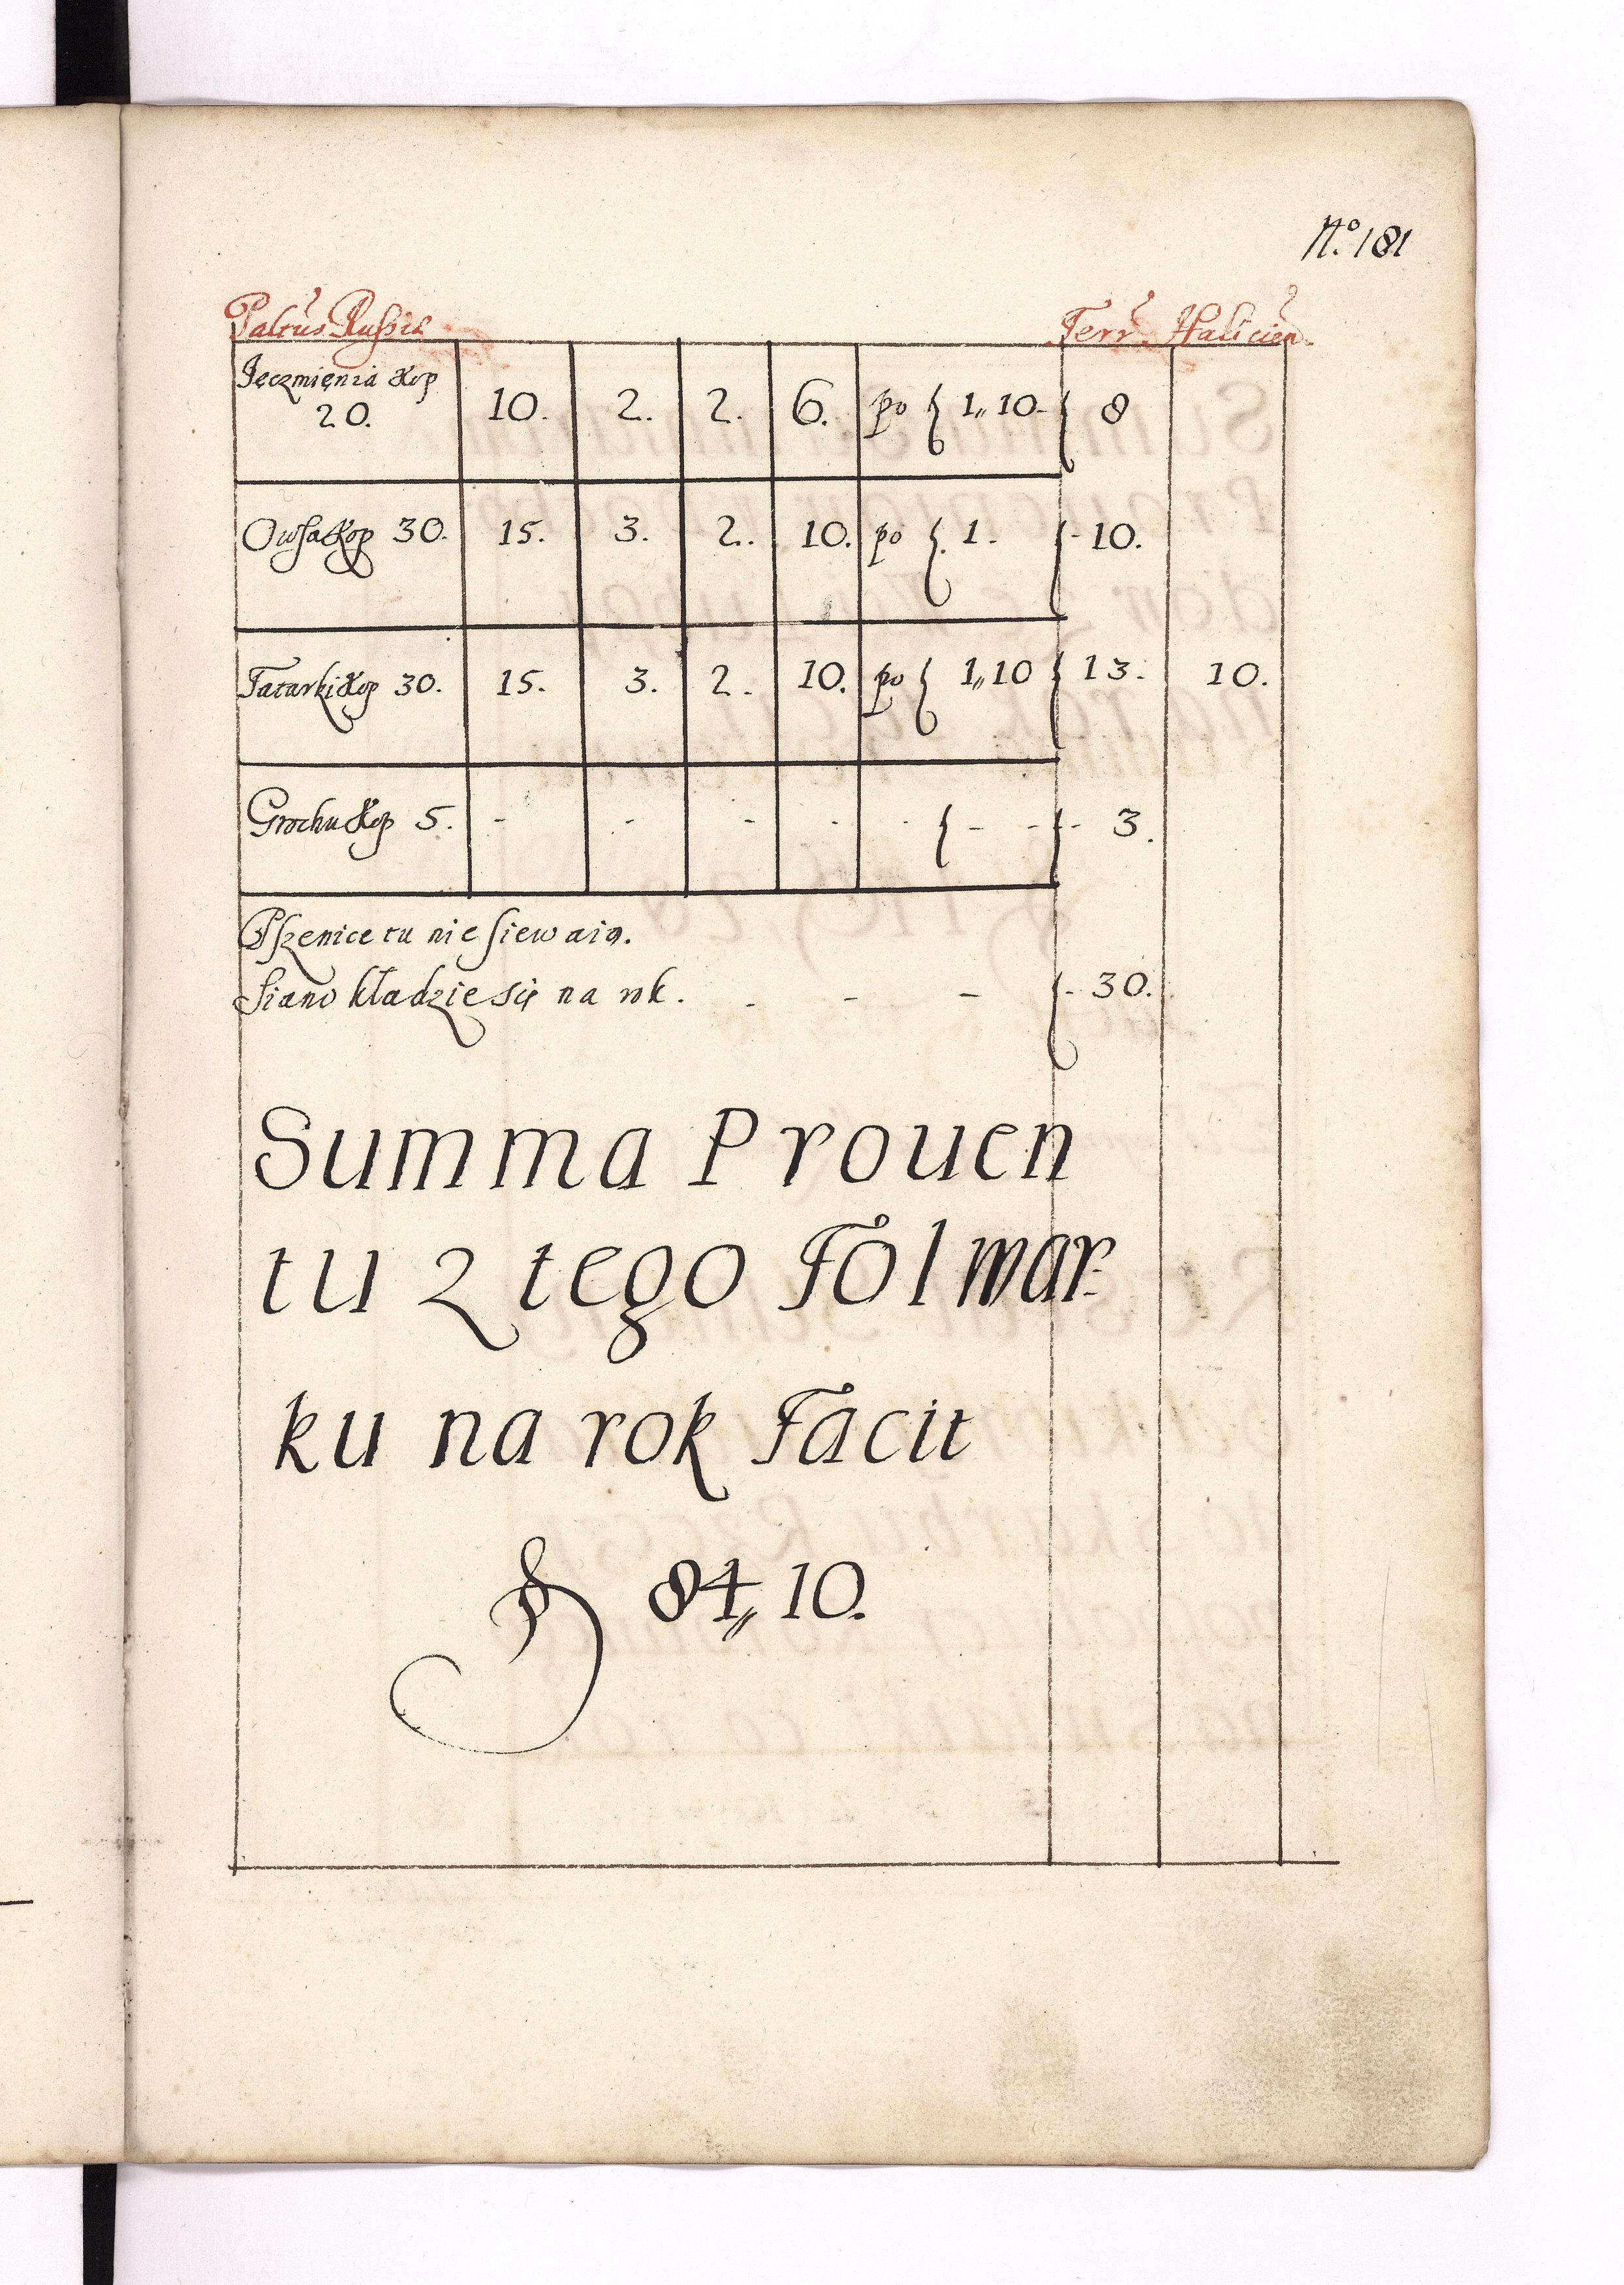 N.º 181
Paltus Russiæ Terr. Halicien.
Jęczmięnia Kop
20. 10. 2. 2. 6. po { 1,, 10. { 8
Owsa Kop 30. 15. 3. 2. 10. po { 1. { - 10.
Tatarki Kop 30. 15. 3. 2. 10. po { 1,, 10 { 13. 10.
Grochu Kop 5. - - - - - { - - { - 3.
Pszenice tu nie siewaią.
Siano kładzie się na rok. - - - { - 30.
Summa Prouen
tu z tego Folwar-
ku na rok Facit
84,, 10.